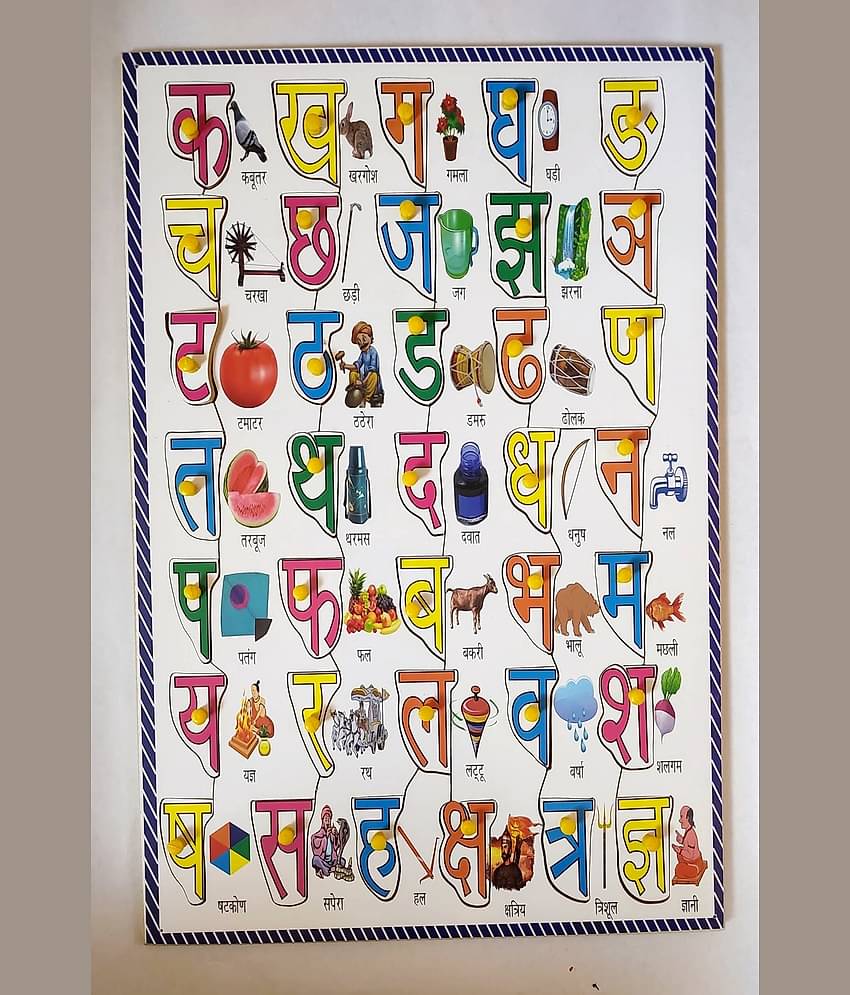 क ख ग घ ङ
कबूतर खरगोश गमला घड़ी
च छ ज झ ञ
चरखा छड़ी जग झरना
ट ठ ड ढ ण
टमाटर ठठेरा डमरु ढोलक
त थ द ध न
तरबूज थरमस दवात धनुष नल
प फ ब भ म
पतंग फल बकरी भालू मछली
य र ल व श
यज्ञ रथ लट्टू वर्षा शलगम
ष स ह क्ष त्र ज्ञ
षटकोण सपेरा हल क्षत्रिय त्रिशूल ज्ञानी